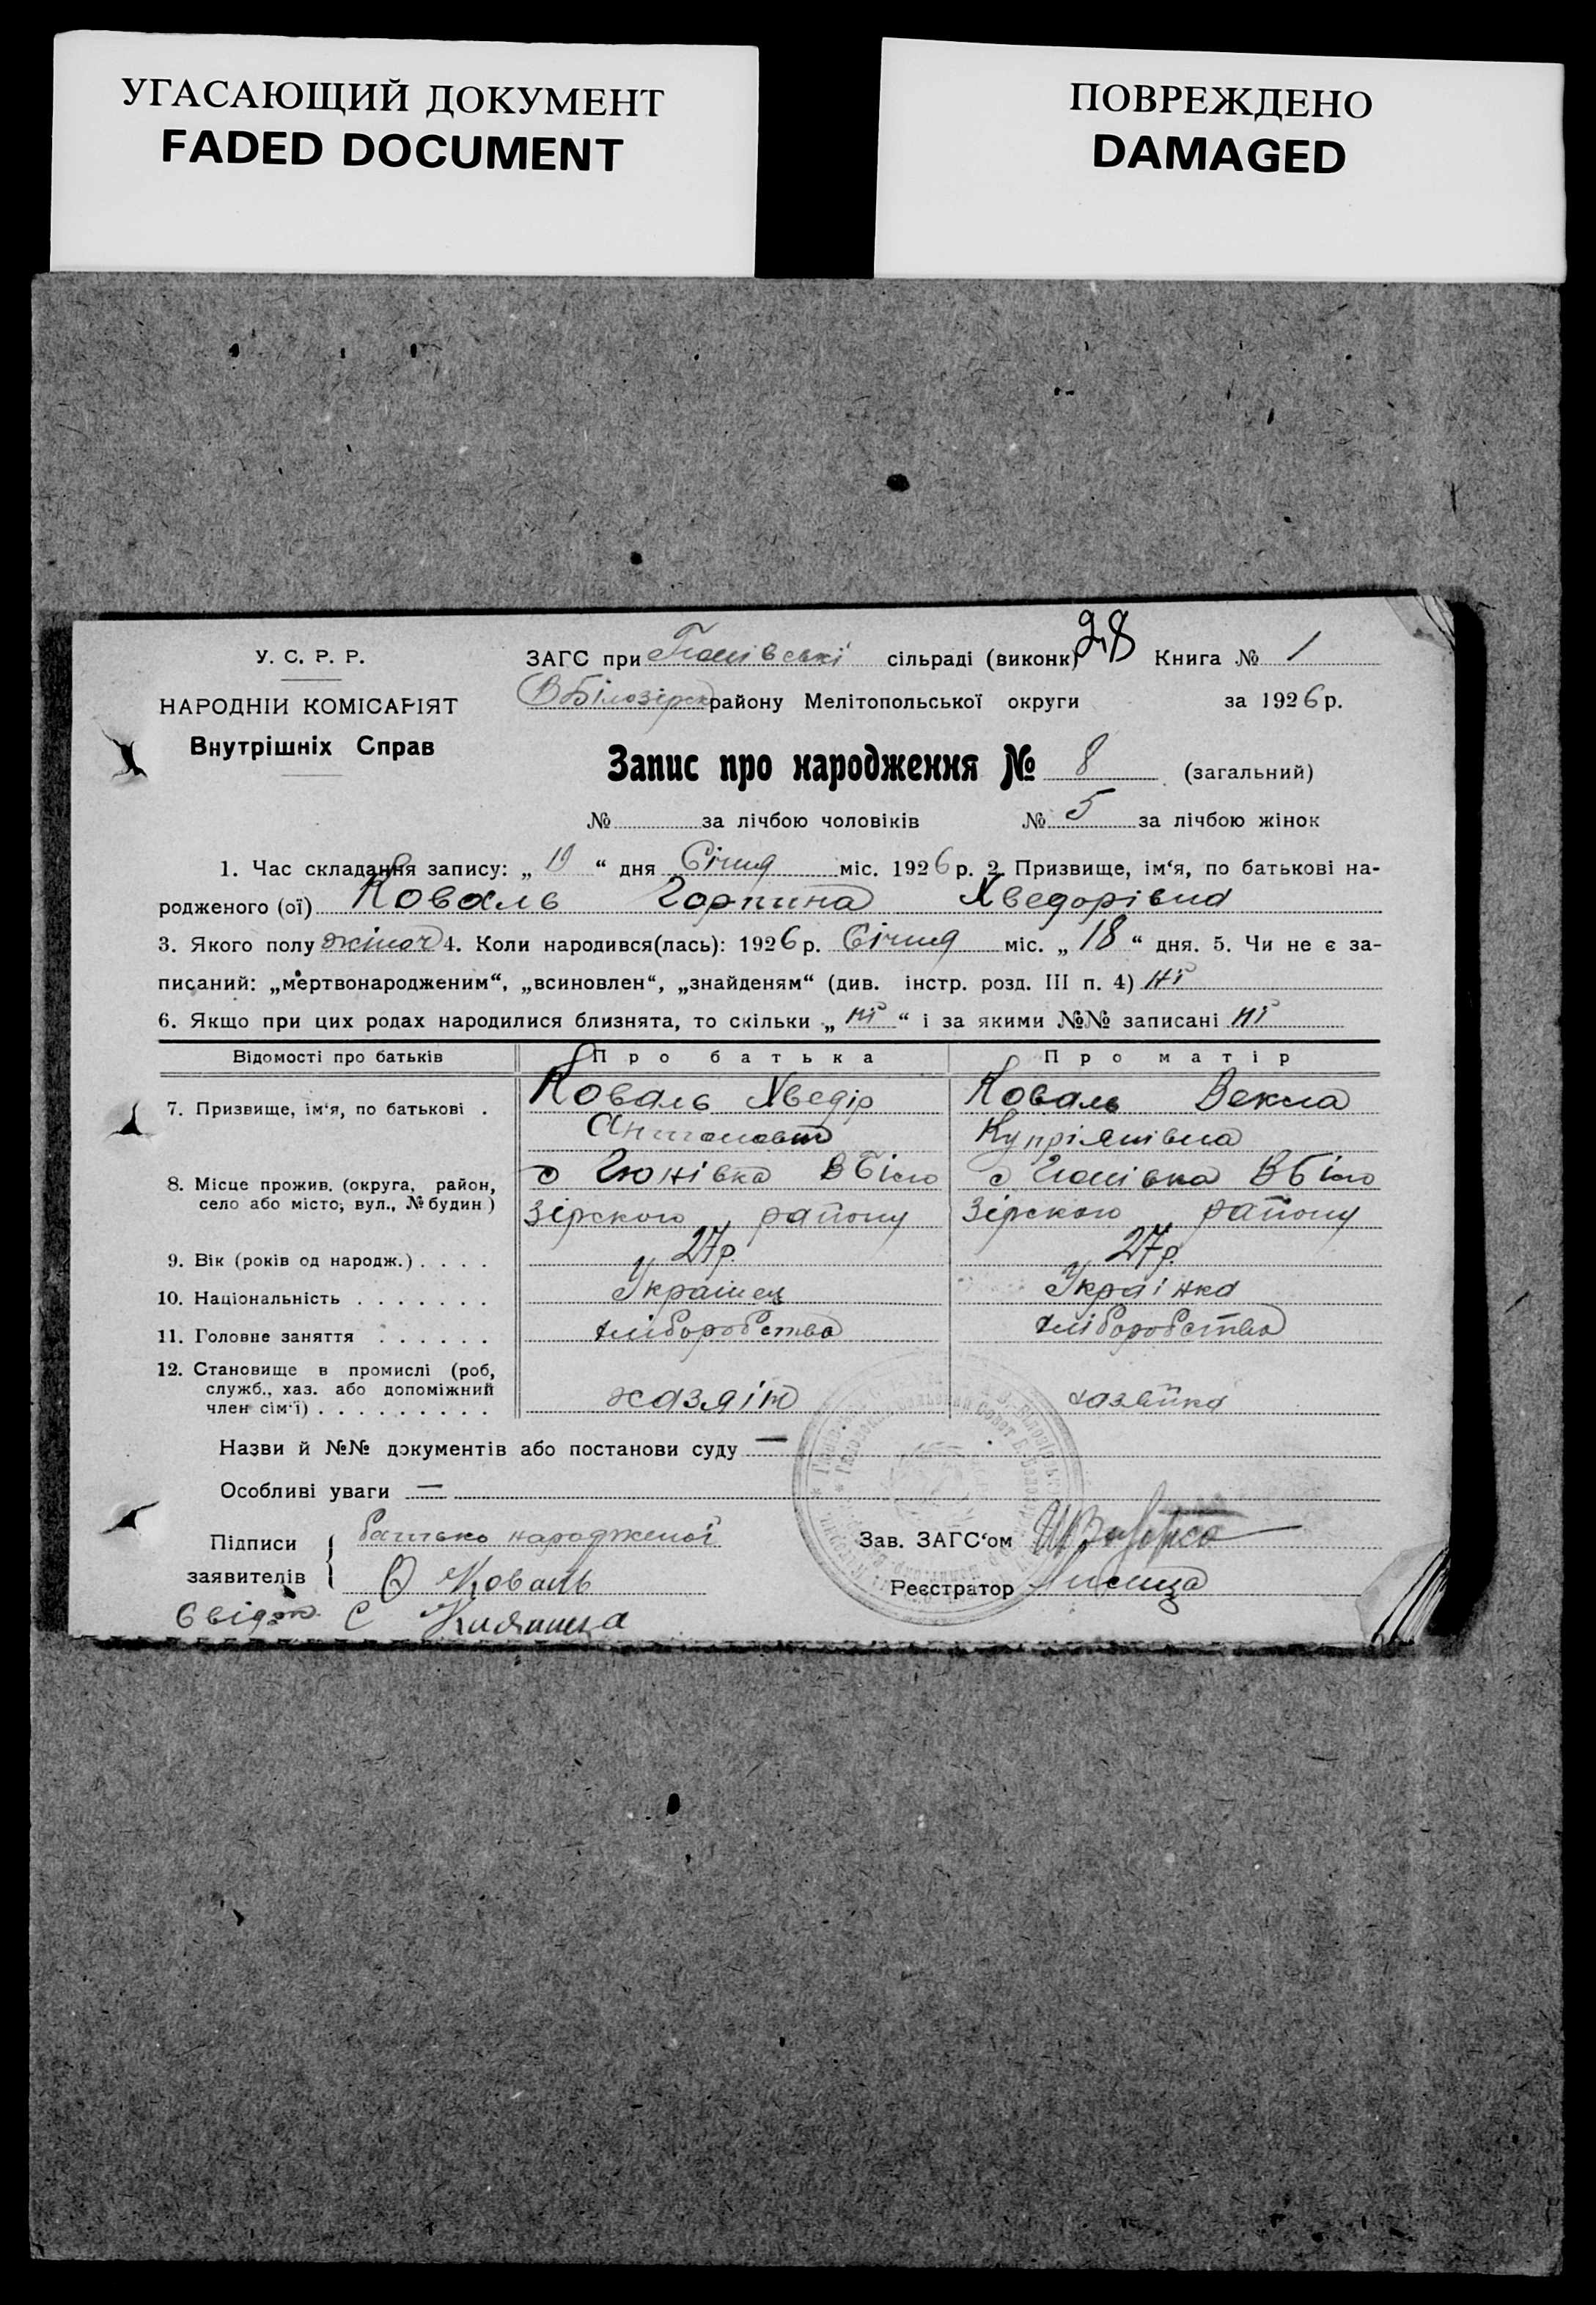 УГАСАЮЩИЙ ДОКУМЕНТ
FADED DOCUMENT
ПОВРЕЖДЕНО
DAMAGED
28
У. С. Р. Р.
НАРОДНІЙ КОМІСАРІЯТ
Внутрішніх Справ
ЗАГС при Гюнівські сільраді (виконк) Книга № 1
ВБілозірск району Мелітопольської округи за 1926 р.
Запис про народження № 8 (загальний)
№ за лічбою чоловіків № 5 за лічбою жінок
1. Час складання запису: „ 19 “ дня Січня міс. 1926 р. 2. Призвище, ім‘я, по батькові на-
родженого (ої) Коваль Горпина Хведорівна
3. Якого полу жіноч 4. Коли народився(лась): 1926 р. Січня міс. „ 18 “ дня. 5. Чи не є за-
писаний: „мертвонародженим“, „всиновлен“, „знайденям“ (див. інстр. розд. III п. 4) ні
6. Якщо при цих родах народилися близнята, то скільки „ ні “ і за якими №№ записані ні
Відомості про батьків Про батька Про матір
7. Призвище, ім‘я, по батькові . Коваль Хведір Коваль Векла
Антонович Купріянівна
8. Місце прожив. (округа, район, с Гюнівка ВБіло с Гюнівка ВБіло
село або місто, вул., № будин) зірского району зірского району
9. Вік (років од народж.) . . . . 27 р. 27 р.
10. Національність . . . . . . . Українец Українка
11. Головне заняття . . . . . . хліборобство хліборобство
12. Становище в промислі (роб,
служб., хаз. або допоміжний
член сім‘ї) . . . . . . . . . хазяїн хазяйка
Назви й №№ документів або постанови суду —
Особливі уваги —
Підписи
заявителів
батько народженої
Коваль
Свідж. С
Зав. ЗАГС‘ом
Реєстратор Лисица